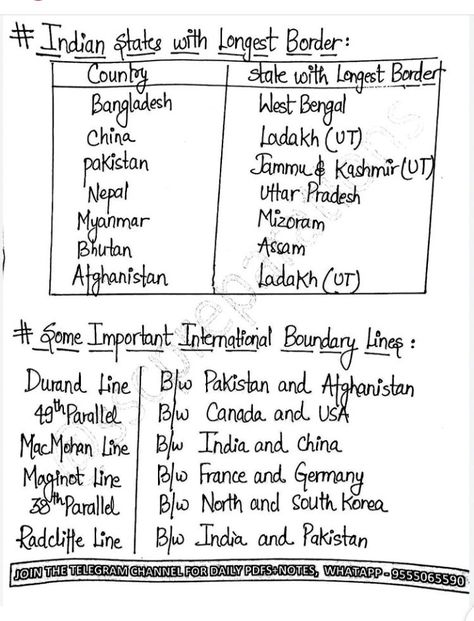 # Indian States with Longest Border :
Country State with Longest Border
Bangladesh West Bengal
China Ladakh (UT)
Pakistan Jammu & Kashmir (UT)
Nepal Uttar Pradesh
Myanmar Mizoram
Bhutan Assam
Afghanistan Ladakh (UT)
# Some Important International Boundary Lines :
Durand Line B/w Pakistan and Afghanistan
49th Parallel B/w Canada and USA
MacMohan Line B/w India and China
Maginot Line B/w France and Germany
38th Parallel B/w North and South Korea
Radcliffe Line B/w India and Pakistan
JOIN THE TELEGRAM CHANNEL FOR DAILY PDFS+NOTES, WHATAPP - 9555065590